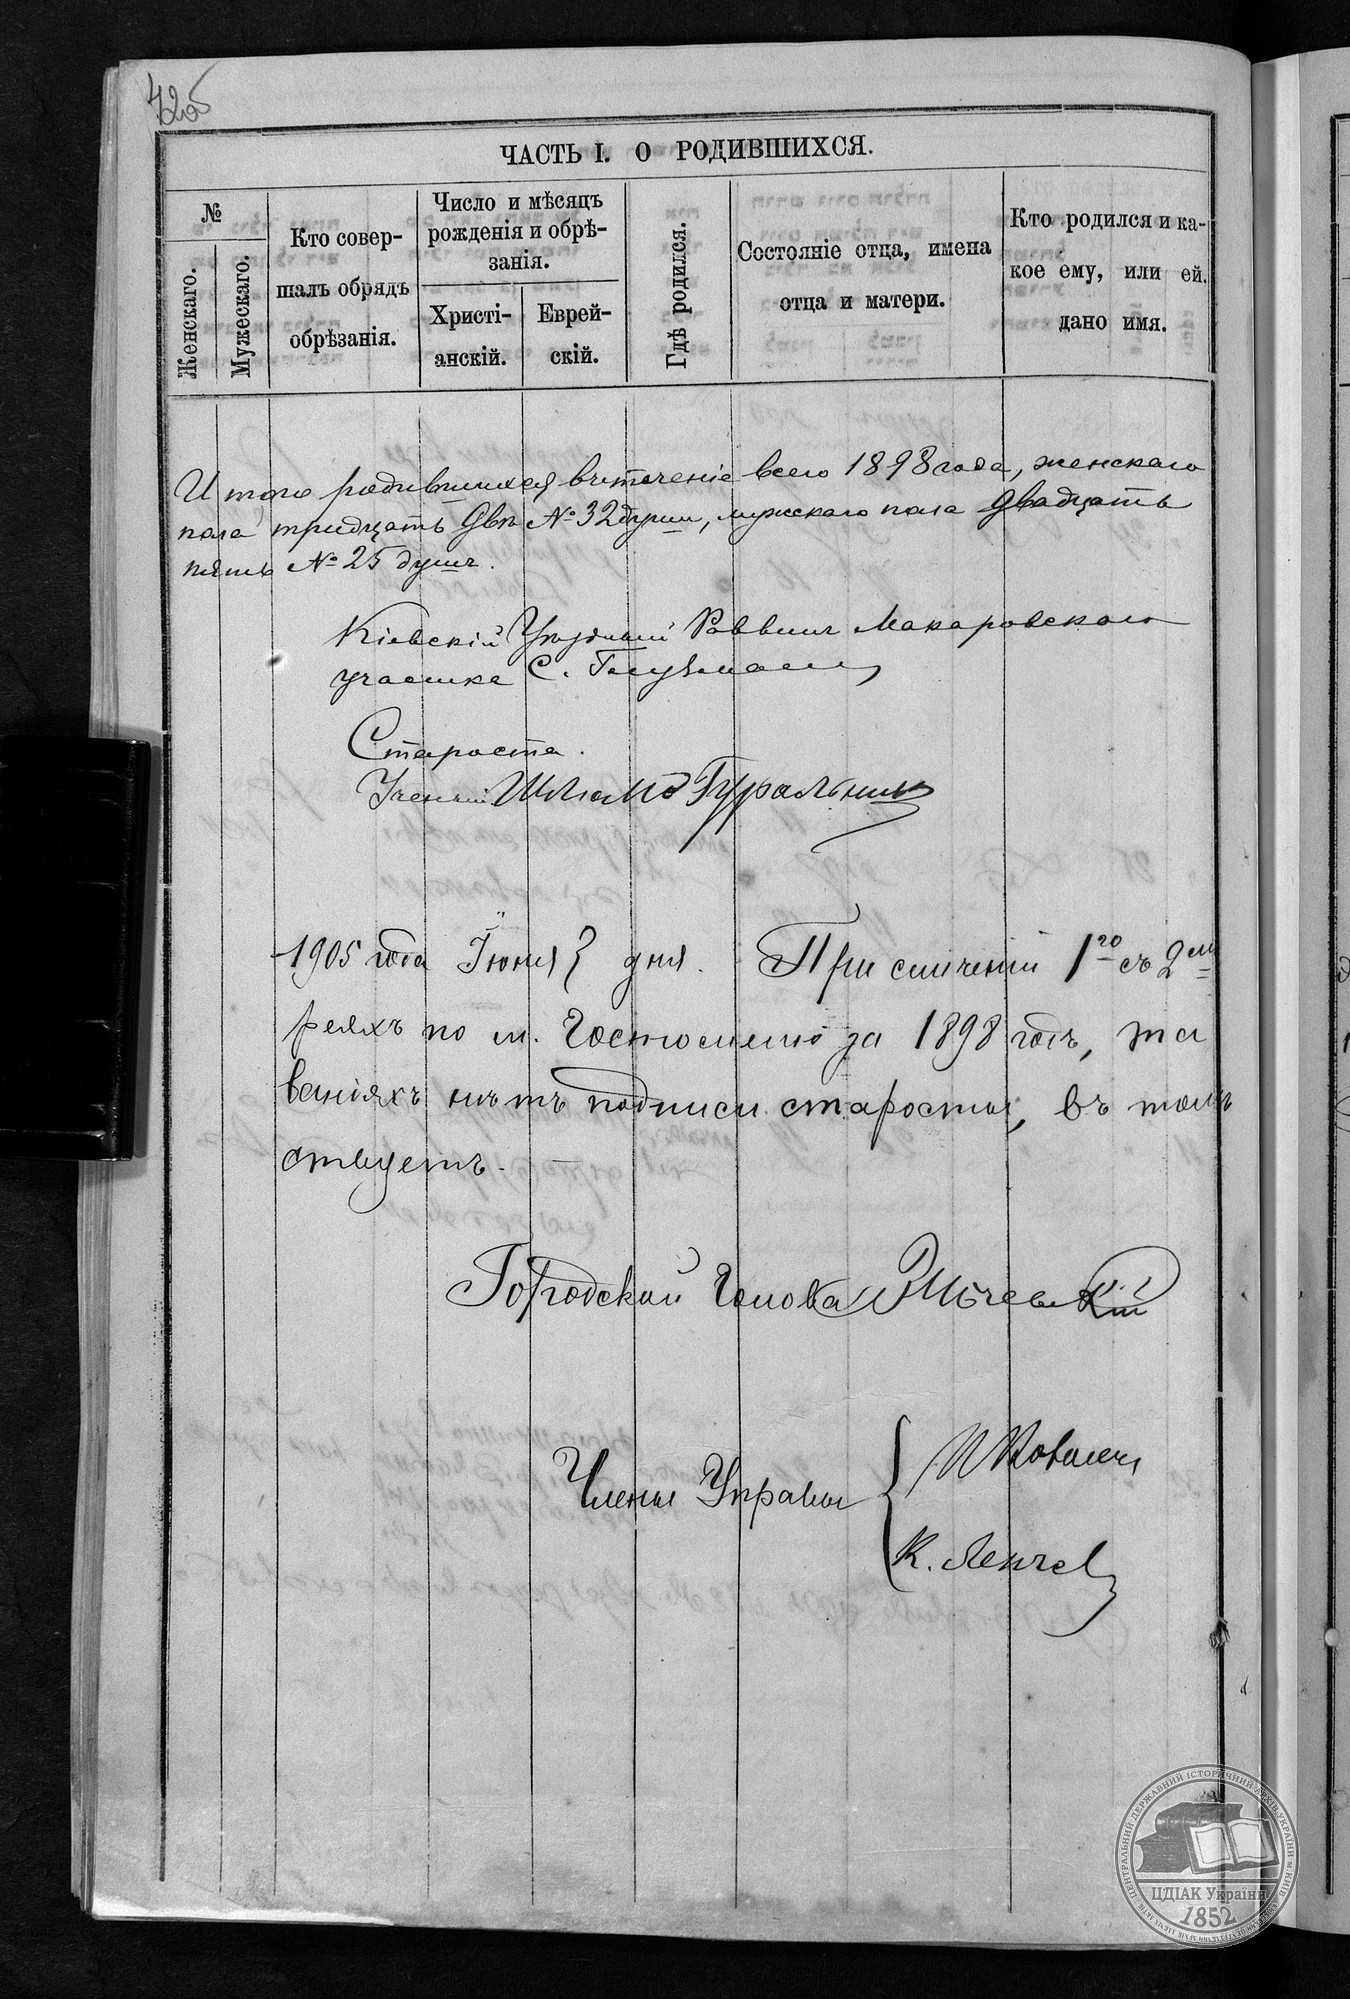 425
ЧАСТЬ I. О РОДИВШИХСЯ.
№
Женскаго.
Мужескаго.
Кто совер-
шалъ обрядъ
обрѣзанія.
Число и мѣсяцъ
рожденія и обрѣ-
занія.
Христі-
анскій.
Еврей-
скій.
Гдѣ родился.
Состояніе отца, имена
отца и матери.
Кто родился и ка-
кое ему, или ей.
дано имя.
Итого родившихся въ теченіе всего 1898 года, женскаго
пола тридцать двѣ №32 души, мужскаго пола двадцать
пять №25 душъ.
Кіевскій Уѣздный Раввинъ Макаровскаго
участка С. Глузманъ
Староста.
Ученый Шлiома Гуральникъ
1905 года Іюня дня. При сличеніи 1го съ 2мъ
реяхъ по м. Гостомелю за 1898 годъ,
ваніяхъ нѣтъ подписи старосты, въ томъ
ствуетъ.
Городской Голова
Члены Управы
И Ковалевъ
К. Ленчев
ЦЕНТРАЛЬНИЙ ДЕРЖАВНИЙ ІСТОРИЧНИЙ АРХІВ УКРАЇНИ М. КИЇВ
ЦДІАК України
1852